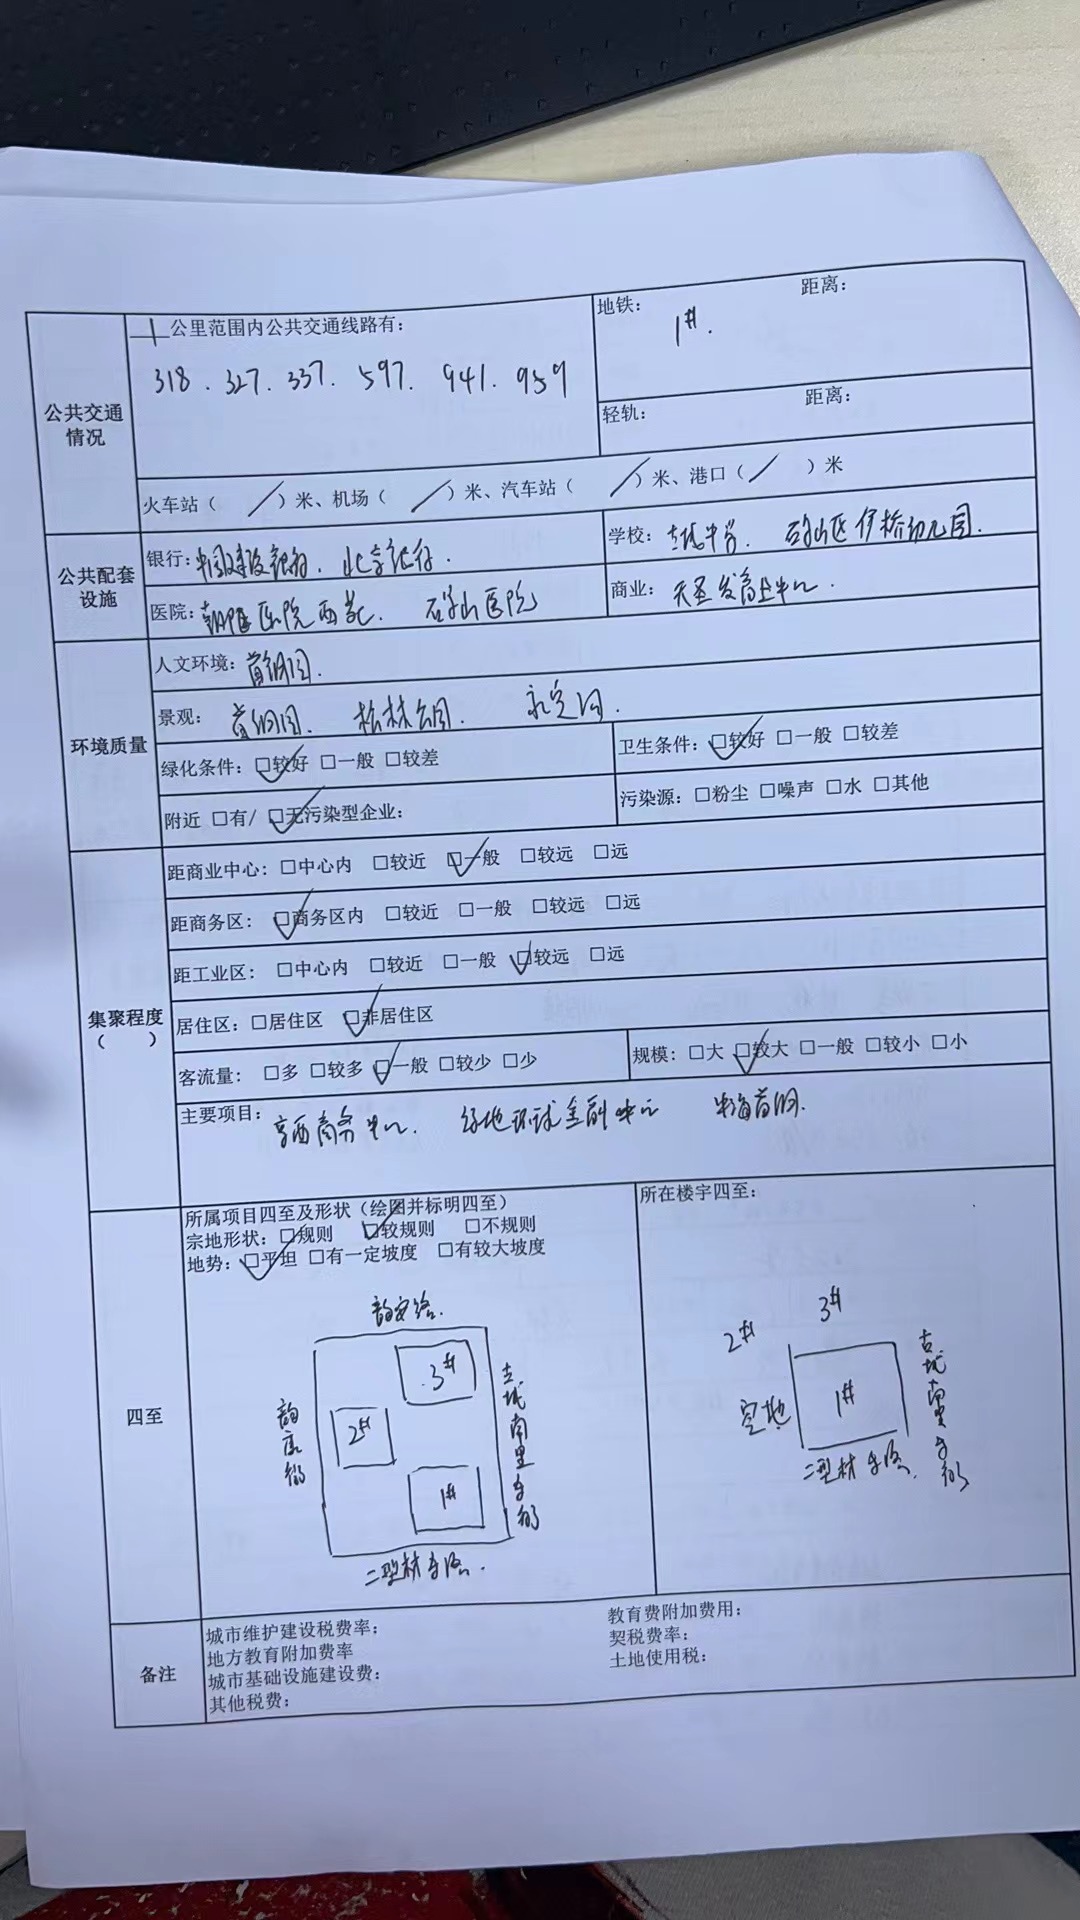 公共交通情况
一公里范围内公共交通线路有：
318．327．337．597．941．959
地铁： 距离：
1#．
轻轨： 距离：
火车站（／）米、机场（／）米、汽车站（／）米、港口（／）米
公共配套设施
银行：中国建设银行．北京银行．
学校：古城中学．石景山区伊桥幼儿园．
医院：朝阳医院西院．石景山医院
商业：
环境质量
人文环境：首钢园．
景观：首钢园．松林公园．永定河．
绿化条件：☑较好 □一般 □较差
卫生条件：☑较好 □一般 □较差
附近 □有/ ☑无污染型企业：
污染源：□粉尘 □噪声 □水 □其他
集聚程度
（ ）
距商业中心：□中心内 □较近 ☑一般 □较远 □远
距商务区：☑商务区内 □较近 □一般 □较远 □远
距工业区：□中心内 □较近 □一般 ☑较远 □远
居住区：□居住区 ☑非居住区
客流量：□多 □较多 ☑一般 □较少 □少
规模：□大 ☑较大 □一般 □较小 □小
主要项目：京西商务中心．绿地环球金融中心 中海首钢．
四至
所属项目四至及形状（绘图并标明四至）
宗地形状：□规则 ☑较规则 □不规则
地势：☑平坦 □有一定坡度 □有较大坡度
3#
2#
1#
古城南里东街
二型材东路．
所在楼宇四至：
3#
2#
1#
空地
古城南里东街
二型材东路．
备注
城市维护建设税费率： 教育费附加费用：
地方教育附加费率 契税费率：
城市基础设施建设费： 土地使用税：
其他税费：